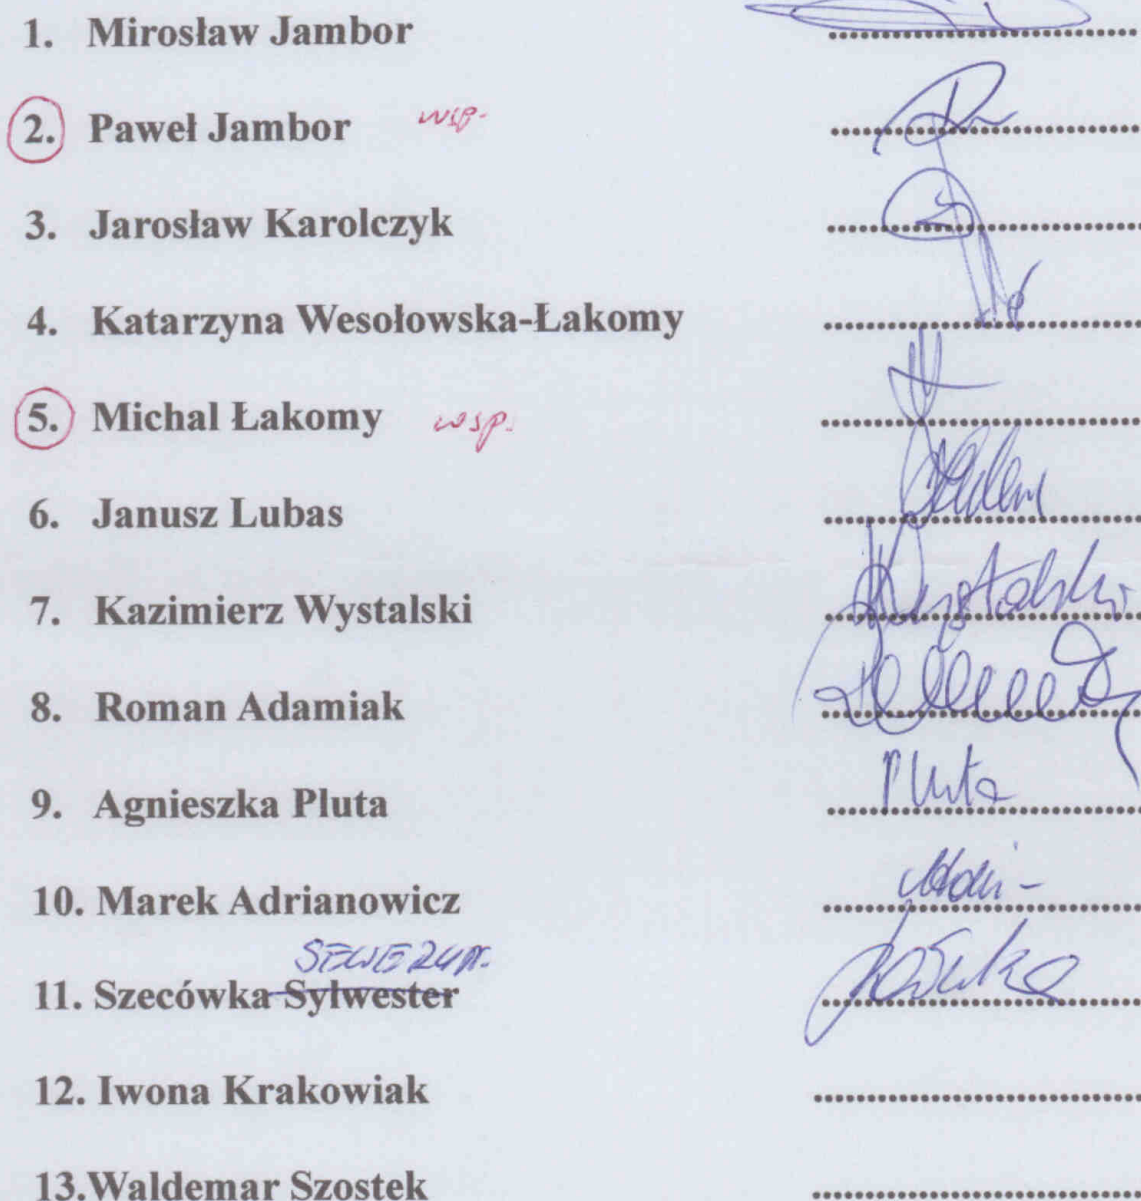 1. Mirosław Jambor
2. Paweł Jambor wsp.
3. Jarosław Karolczyk
4. Katarzyna Wesołowska-Łakomy
5. Michal Łakomy wsp.
6. Janusz Lubas
7. Kazimierz Wystalski Wystalski
8. Roman Adamiak
9. Agnieszka Pluta Pluta
10. Marek Adrianowicz
SEWERYN.
11. Szecówka Sylwester
12. Iwona Krakowiak
13.Waldemar Szostek